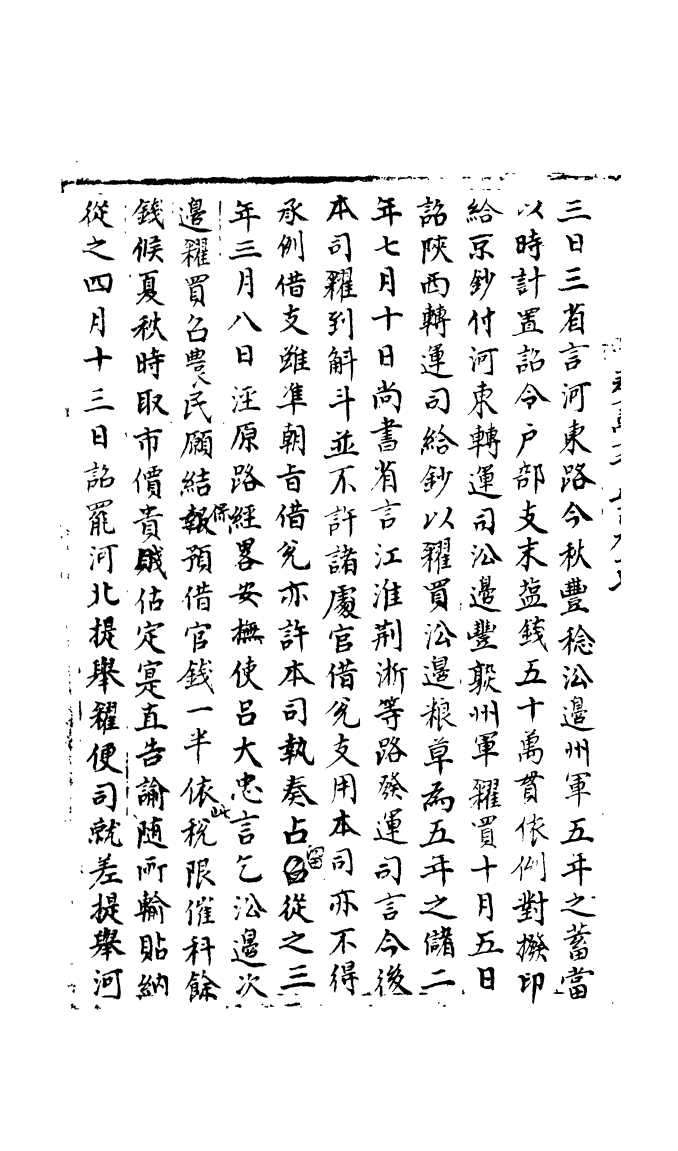 三日三省言河東路今秋豐稔沿邊州軍五年之蓄當
以時計置詔令户部支末盐錢五十萬貫依例對撥印
給京鈔付河東轉運司沿邊豐熟州軍糴買十月五日
詔陝西轉運司給鈔以糴買沿邊粮草為五年之儲二
年七月十日尚書省言江淮荆浙等路發運司言今後
本司糴到斛斗並不許諸處官借兊支用本司亦不得
承例借支雖準朝旨借兊亦許本司執奏占留從之三
年三月八日涇原路經畧安撫使吕大忠言乞沿邊次
邊糴買召農民願結保預借官錢一半依此税限催科餘
錢候夏秋時取市價貴賤估定寔直告諭随所輸貼納
從之四月十三日詔罷河北提舉糴便司就差提舉河